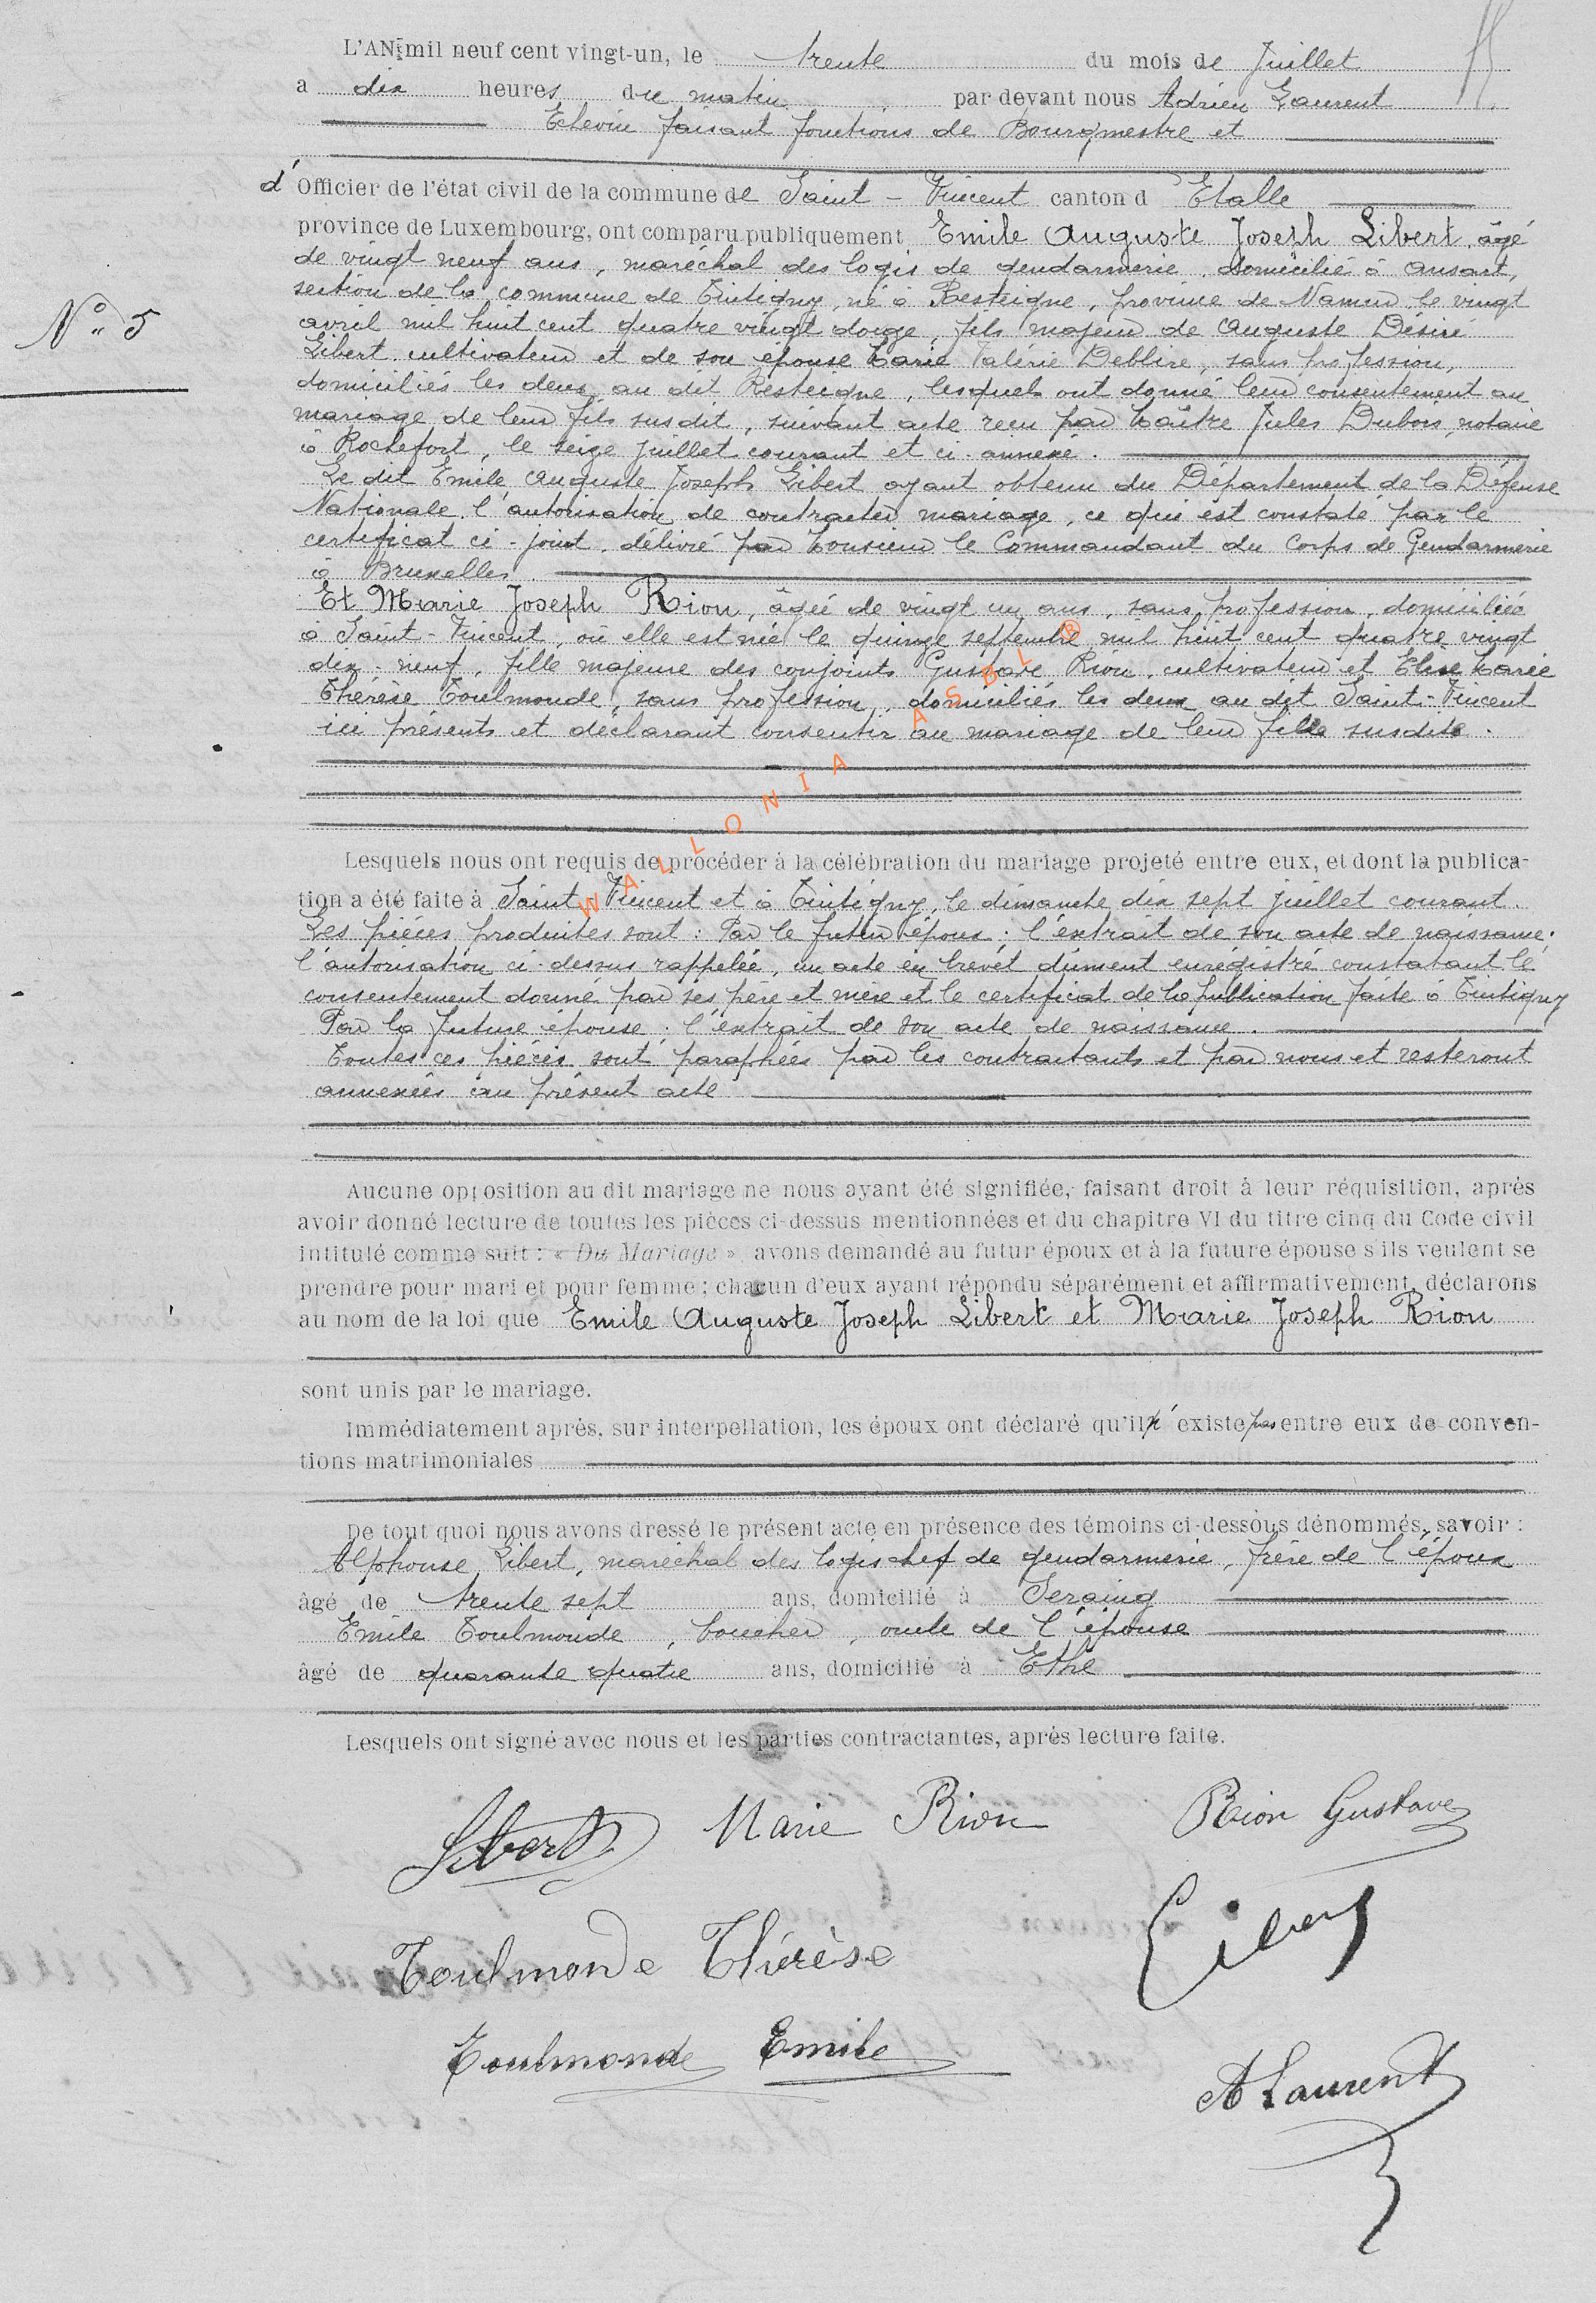 L'AN mil neuf cent vingt-un, le trente du mois de Juillet
a dix heures du matin par devant nous Adrien Laurent
Echevin faisant fonctions de Bourgmestre et
d' Officier de l'état civil de la commune de Saint - Vincent canton d' Etalle
province de Luxembourg, ont comparu publiquement Emile Auguste Joseph Libert, âgé
de vingt neuf ans, maréchal des logis de gendarmerie, domicilié à Ansart,
section de la commune de Tintigny, né à Resteigne, province de Namur le vingt
N° 5
avril mil huit cent quatre vingt douze, fils majeur de Auguste Désiré
Libert cultivateur et de son épouse Marie Valérie Deblire, sans profession,
domiciliés les deux au dit Resteigne, lesquels ont donné leur consentement au
mariage de leur fils susdit, suivant acte reçu par Maître Jules Dubois, notaire
à Rochefort, le seize juillet courant et ci-annexé.
Le dit Emile Auguste Joseph Libert ayant obtenu du Département de la Défense
Nationale l'autorisation de contracter mariage, ce qui est constaté par le
certificat ci-joint, délivré par Monsieur le Commandant du Corps de Gendarmerie
à Bruxelles.
Et Marie Joseph Rion, âgée de vingt un ans, sans profession, domiciliée
à Saint-Vincent, où elle est née le quinze septembre mil huit cent quatre vingt
dix-neuf, fille majeure des conjoints Gustave Rion, cultivateur et Elise Marie
Thérèse Toulmonde, sans profession, domiciliés les deux au dit Saint-Vincent
ici présents et déclarant consentir au mariage de leur fille susdite.
WALLONIA ASBL ®
Lesquels nous ont requis de procéder à la célébration du mariage projeté entre eux, et dont la publica-
tion a été faite à Saint-Vincent et à Tintigny, le dimanche dix sept juillet courant.
Les pièces produites sont : Par le futur époux : l'extrait de son acte de naissance;
l'autorisation ci-dessus rappelée, un acte en brevet dûment enregistré constatant le
consentement donné par ses père et mère et le certificat de la publication faite à Tintigny
Par la future épouse : l'extrait de son acte de naissance.
Toutes ces pièces sont paraphées par les contractants et par nous et resteront
annexées au présent acte
Aucune opposition au dit mariage ne nous ayant été signifiée, faisant droit à leur réquisition, après
avoir donné lecture de toutes les pièces ci-dessus mentionnées et du chapitre VI du titre cinq du Code civil
intitulé comme suit : « Du Mariage » avons demandé au futur époux et à la future épouse s'ils veulent se
prendre pour mari et pour femme ; chacun d'eux ayant répondu séparément et affirmativement, déclarons
au nom de la loi que Emile Auguste Joseph Libert et Marie Joseph Rion
sont unis par le mariage.
Immédiatement après, sur interpellation, les époux ont déclaré qu'il n'existe pas entre eux de conven-
tions matrimoniales
De tout quoi nous avons dressé le présent acte en présence des témoins ci-dessous dénommés, savoir :
Alphonse Libert, maréchal des logis chef de gendarmerie, frère de l'époux
âgé de trente sept ans, domicilié à Seraing
Emile Toulmonde, boucher, oncle de l'épouse
âgé de quarante quatre ans, domicilié à Ethe
Lesquels ont signé avec nous et les parties contractantes, après lecture faite.
Libert Marie Rion Rion Gustave
Toulmonde Thérèse Libert
Toulmonde Emile
A Laurent